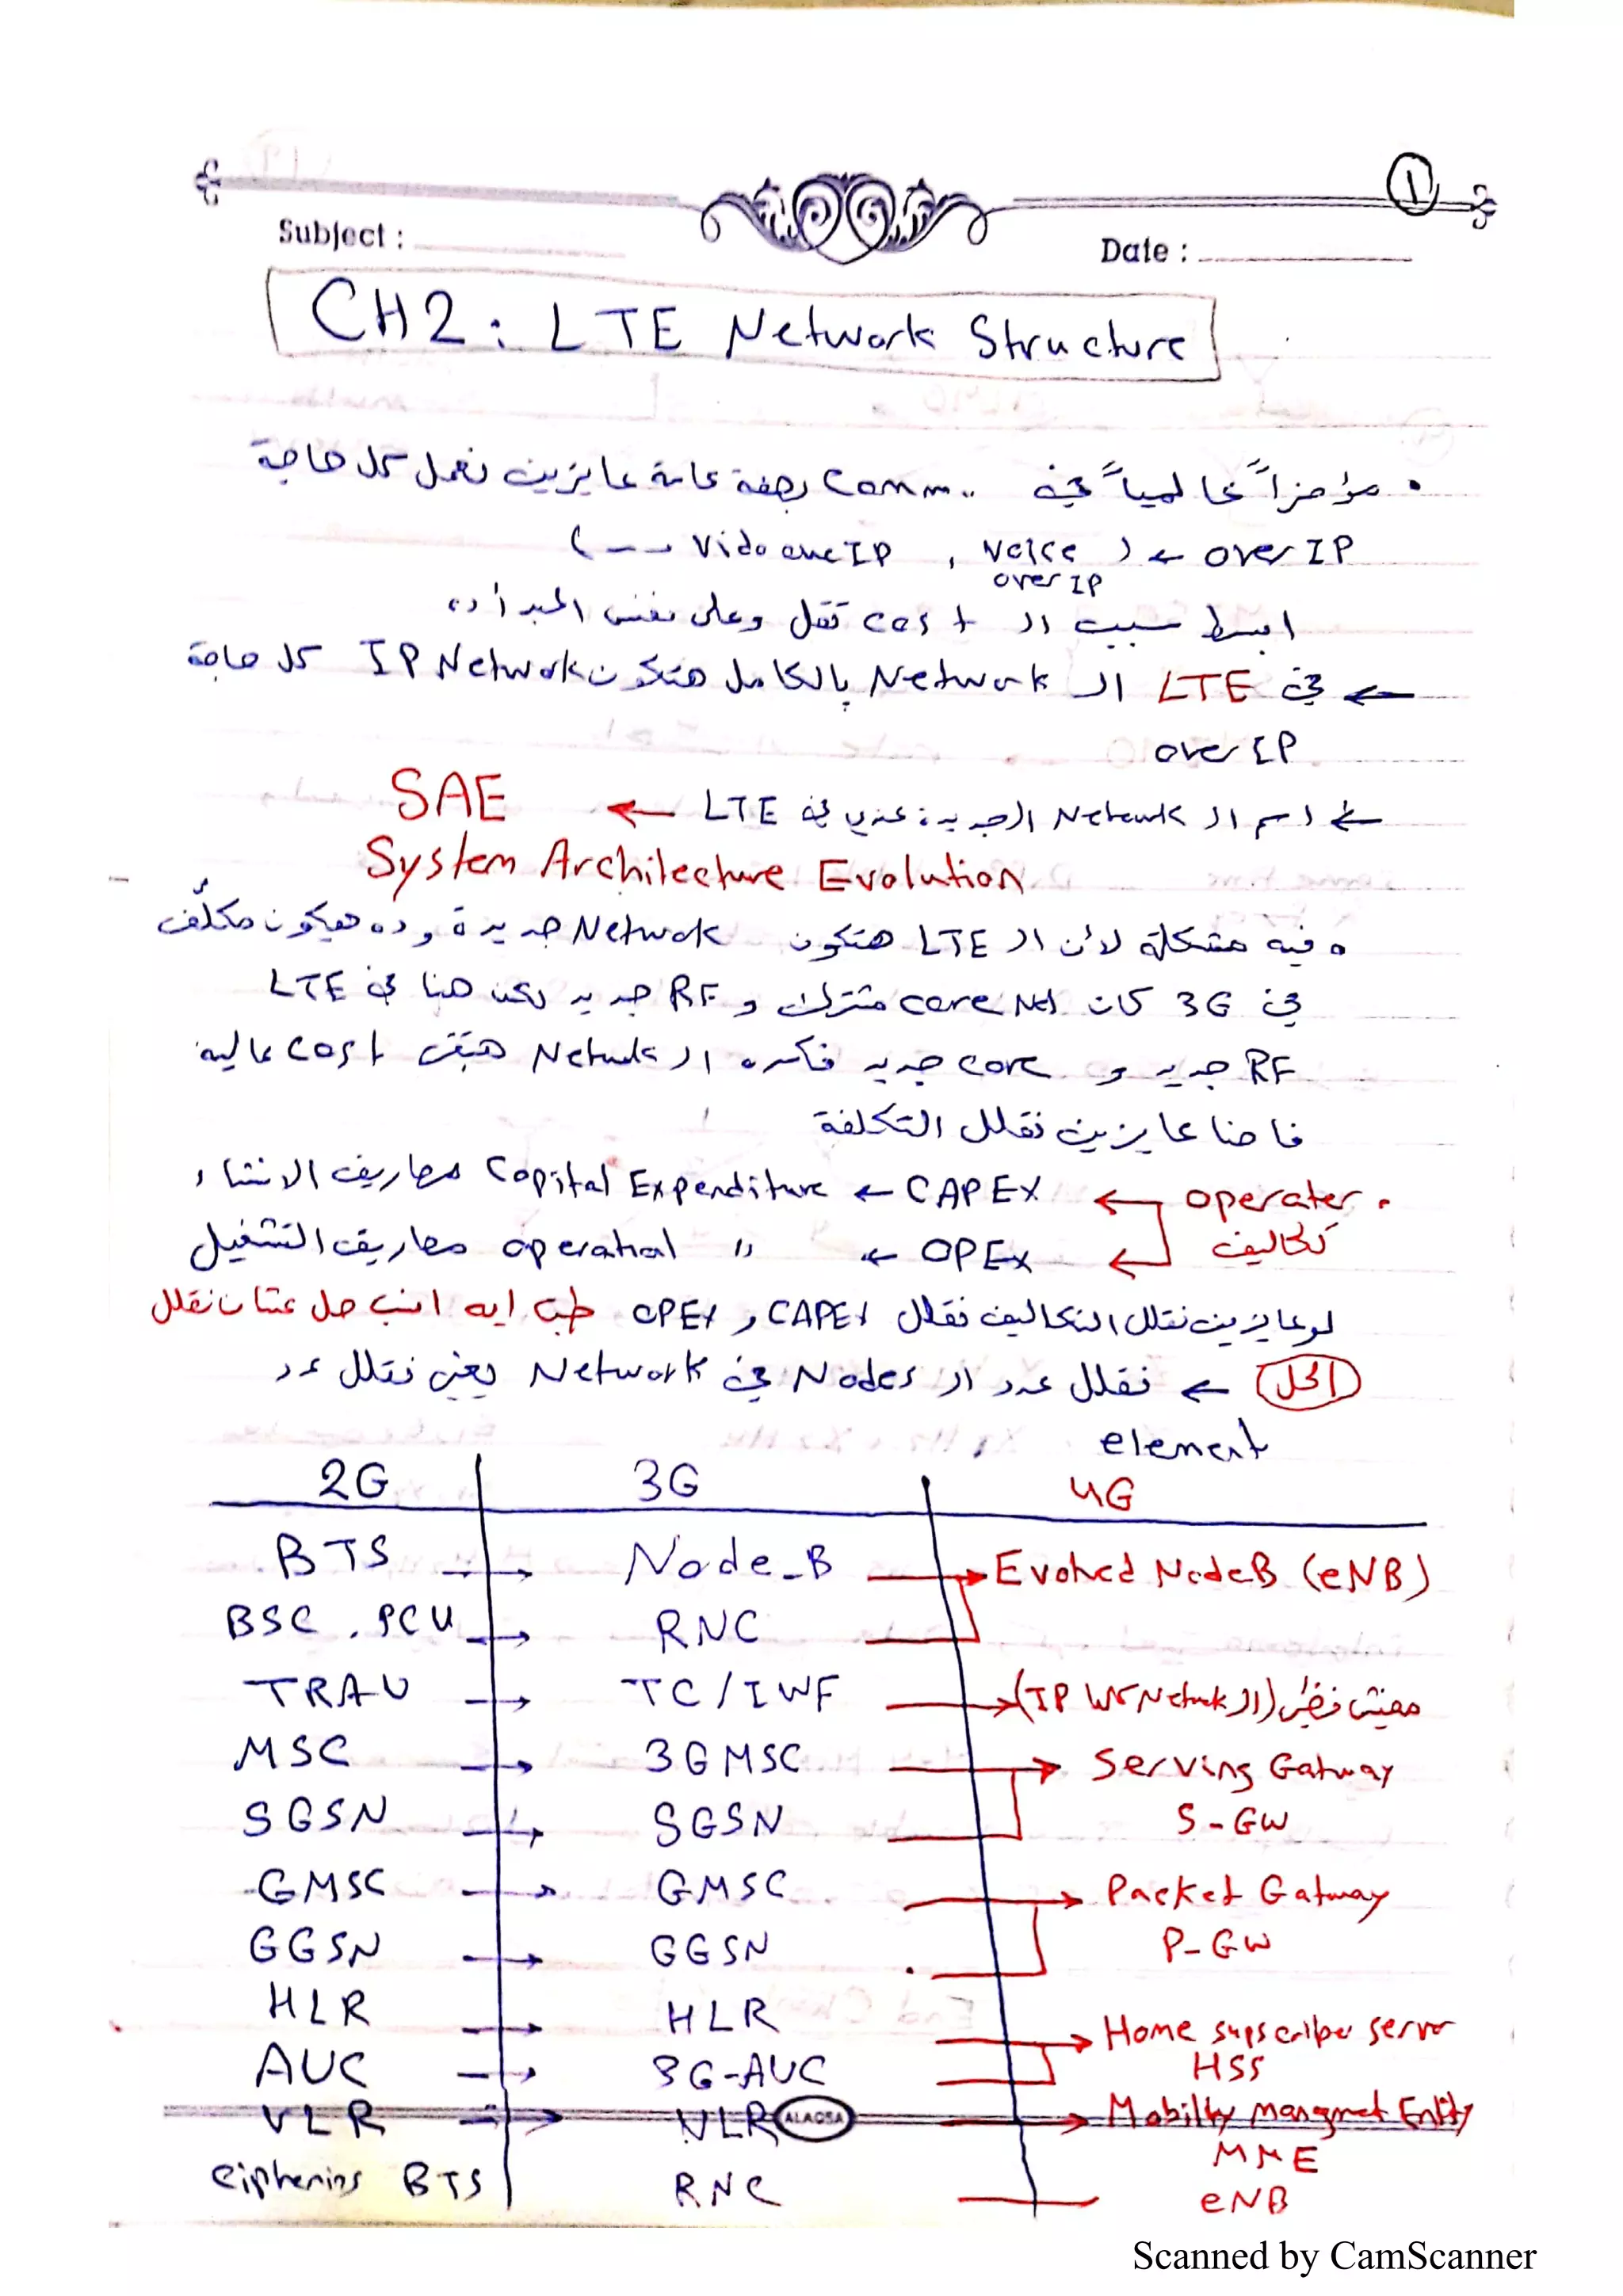 ①
Subject :
Date :
CH2: LTE Network Structure
• مؤخراً عالمياً في Comm.. بصفة عامة عايزين نعمل كل حاجة
over IP ← (voice over IP , Vido over IP --)
ابسط سبب ال cost تقل وعلى نفس المبدأ ده
← في LTE ال Network بالكامل هتكون IP Network كل حاجة
over IP
← اسم ال Network الجديدة عندي في LTE ← SAE
System Architecture Evolution
• فيه مشكلة لأن ال LTE هتكون Network جديدة وده هيكون مكلف
في 3G كان core Net مشترك و RF جديد لكن هنا في LTE
RF جديد و core جديد فكده ال Network هتبقى cost عالية
فاحنا عايزين نقلل التكلفة
• operater تكاليف
← CAPEX ← Capital Expenditure مصاريف الانشاء
← OPEX ← operational " مصاريف التشغيل
لو عايزين نقلل التكاليف نقلل CAPEX و OPEX طب ايه انسب حل عشان نقلل
الحل ← نقلل عدد ال Nodes في Network يعني نقلل عدد
element
2G 3G 4G
BTS → Node_B → Evolved NodeB (eNB)
BSC , PCU → RNC
TRAU → TC/IWF → مفيش خطي (ال Network كلها IP)
MSC → 3G MSC → Serving Gatway
SGSN → SGSN S-GW
GMSC → GMSC → Packet Gatway
GGSN → GGSN P-GW
HLR → HLR → Home supscriber server
AUC → 3G-AUC HSS
VLR → VLR → Mobility Mangmet Entity
ALAQSA
MME
Ciphering BTS RNC — eNB
Scanned by CamScanner